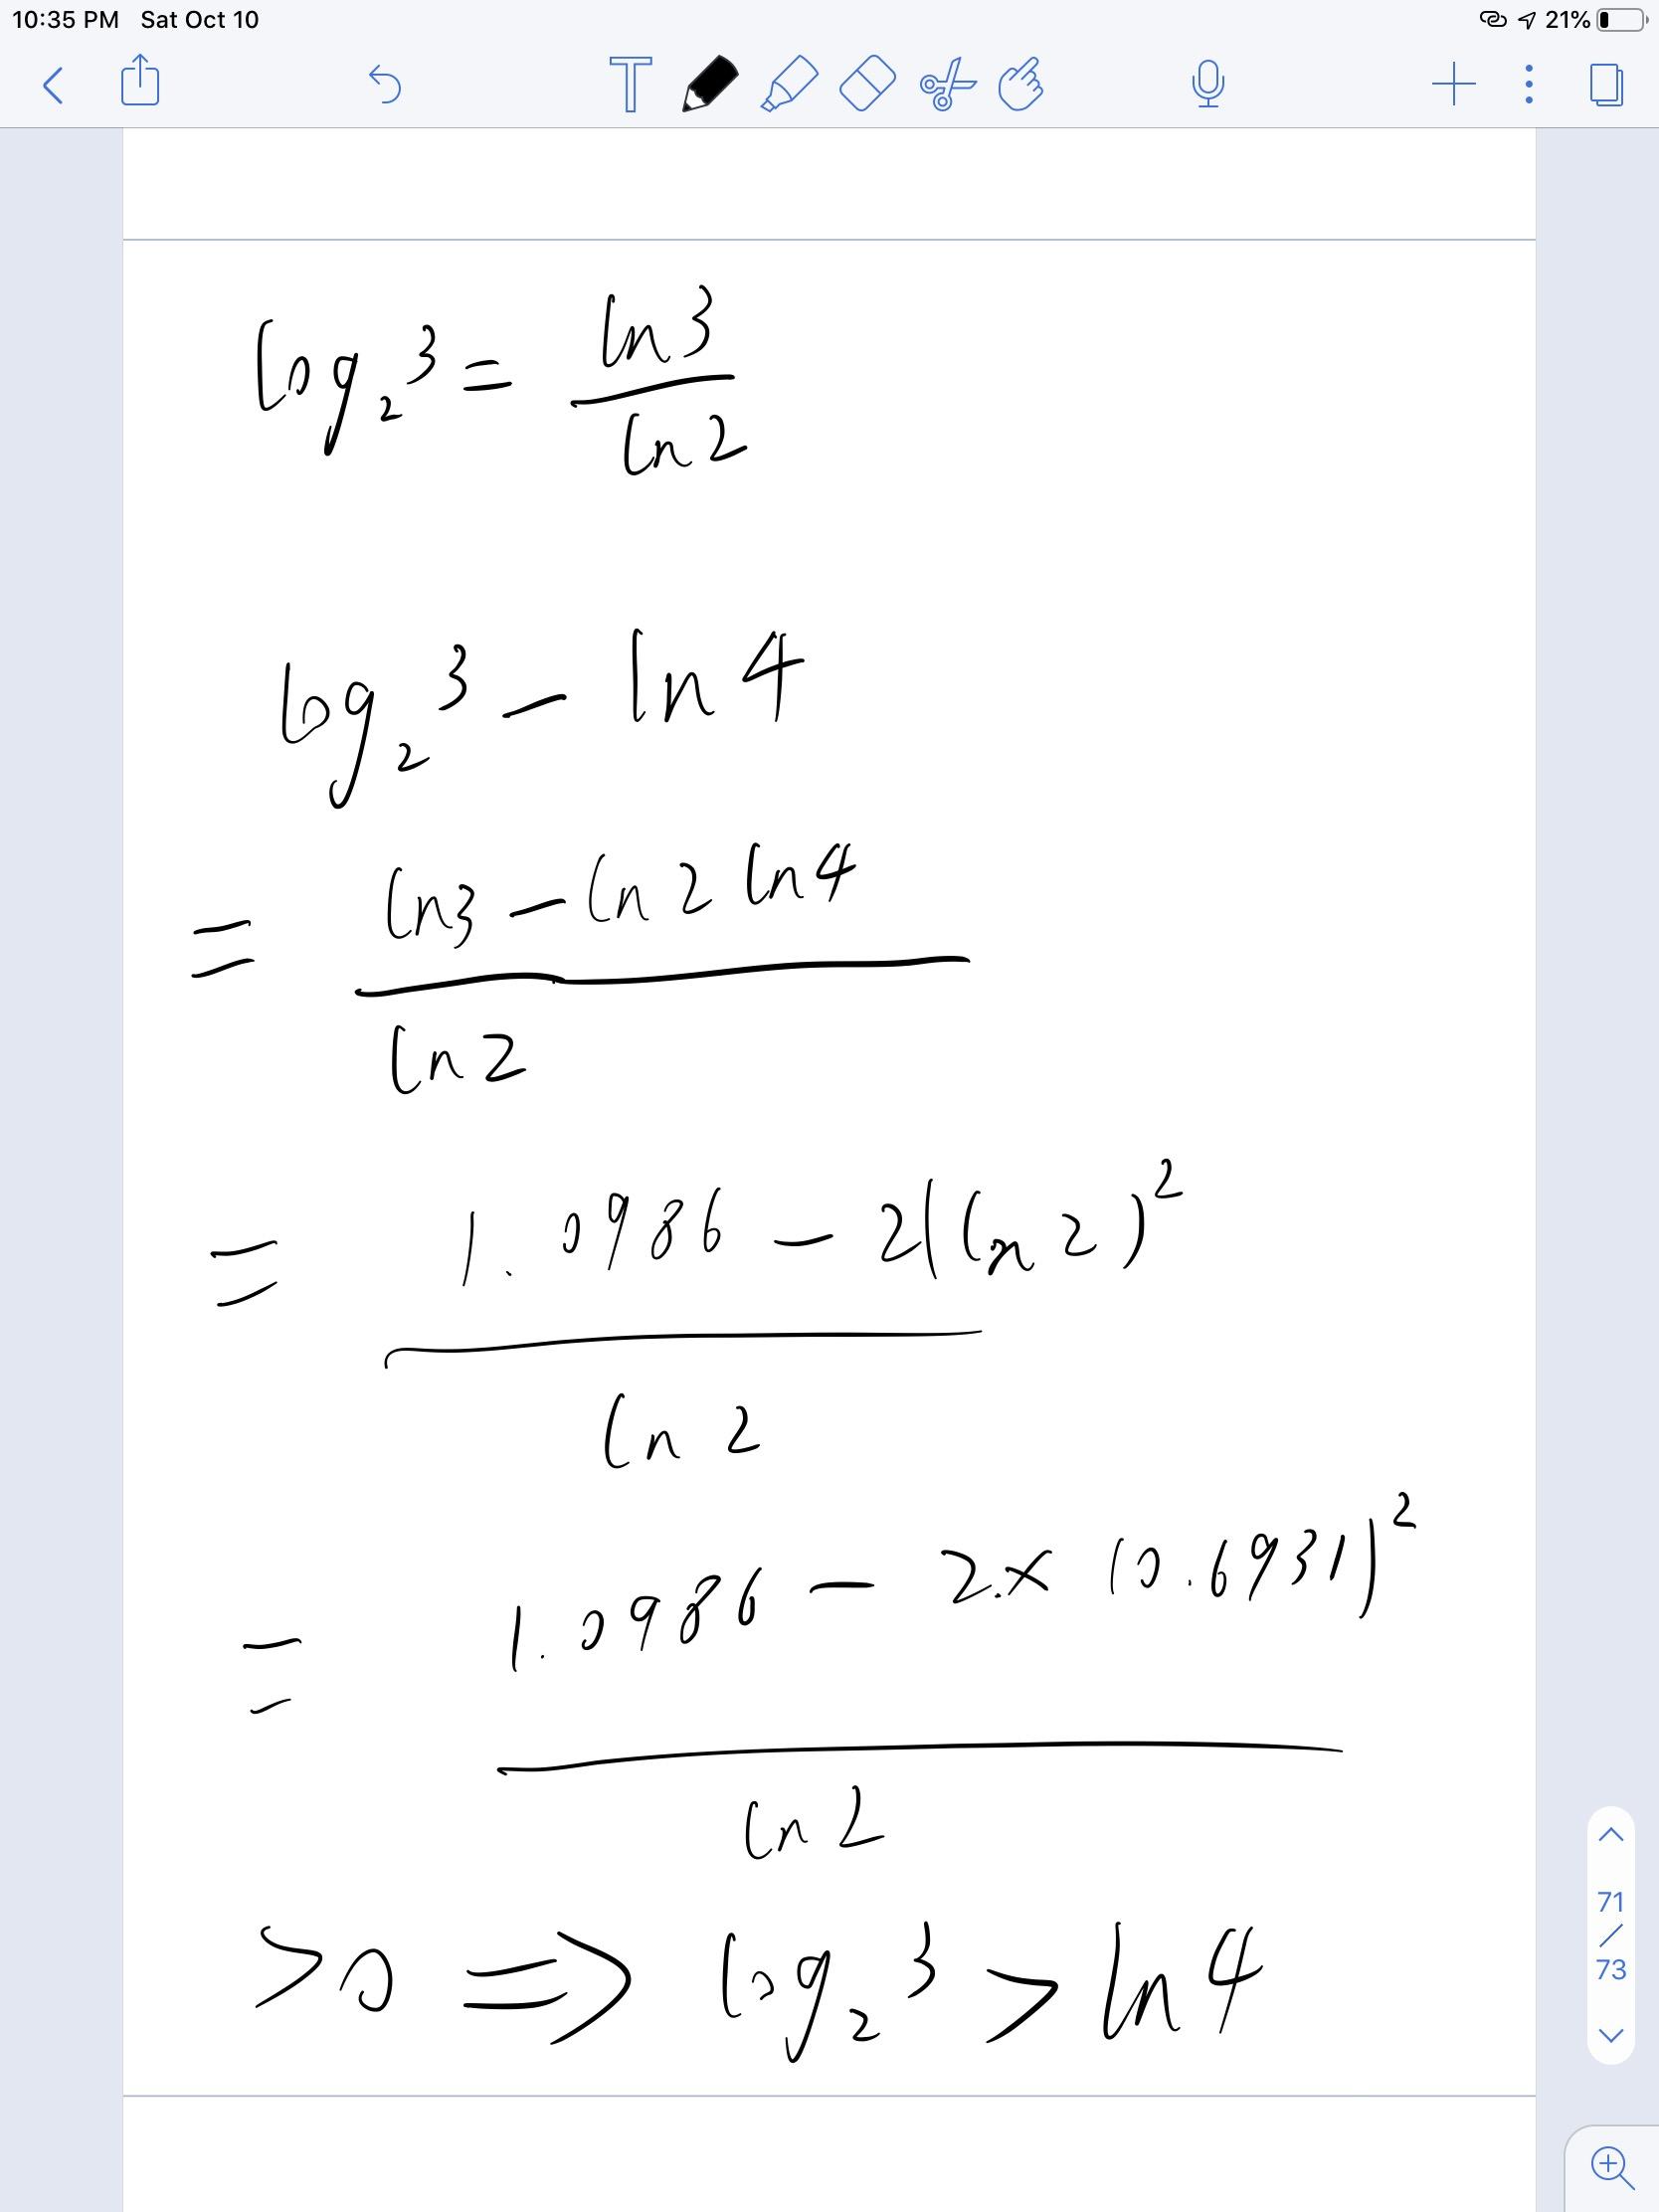 10:35 PM Sat Oct 10 21%
T
log₂3 = ln3
ln2
log₂3 - ln4
= ln3 - ln2 ln4
ln2
= 1.0986 - 2(ln2)²
ln2
= 1.0986 - 2×(0.6931)²
ln2
>0 => log₂3 > ln4
71
/
73